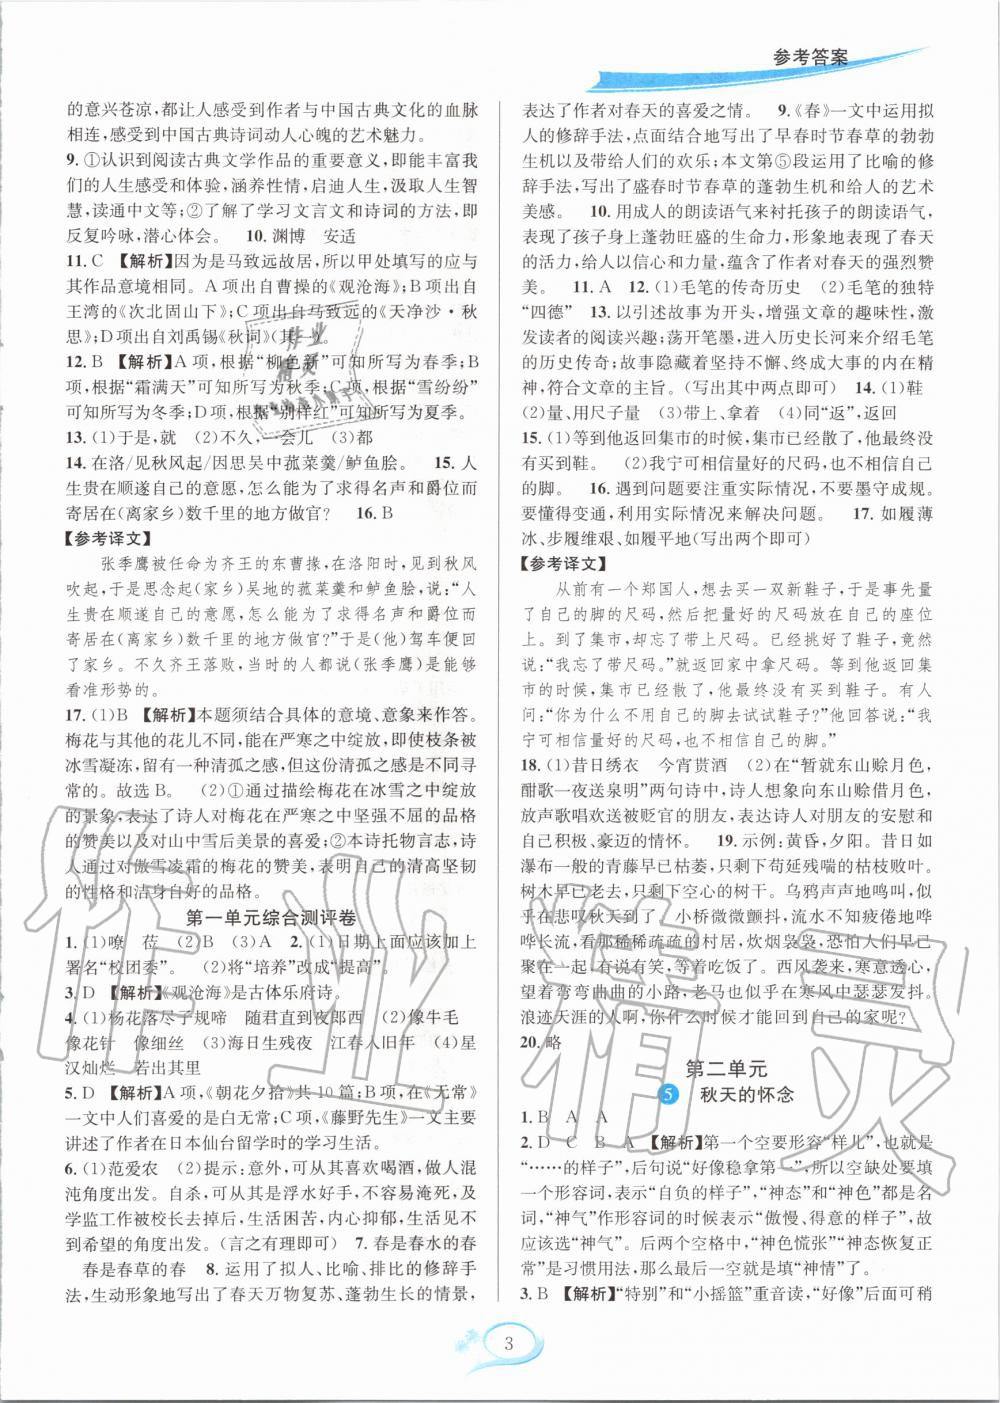 参考答案
的意兴苍凉,都让人感受到作者与中国古典文化的血脉
相连,感受到中国古典诗词动人心魄的艺术魅力。
9. ①认识到阅读古典文学作品的重要意义,即能丰富我
们的人生感受和体验,涵养性情,启迪人生,汲取人生智
慧,读通中文等;②了解了学习文言文和诗词的方法,即
反复吟咏,潜心体会。 10. 渊博 安适
11. C 【解析】因为是马致远故居,所以甲处填写的应与
其作品意境相同。A项出自曹操的《观沧海》;B项出自
王湾的《次北固山下》;C项出自马致远的《天净沙·秋
思》;D项出自刘禹锡《秋词》(其一)。
12. B 【解析】A项,根据“柳色新”可知所写为春季;B
项,根据“霜满天”可知所写为秋季;C项,根据“雪纷纷”
可知所写为冬季;D项,根据“别样红”可知所写为夏季。
13. (1)于是,就 (2)不久,一会儿 (3)都
14. 在洛/见秋风起/因思吴中菰菜羹/鲈鱼脍。 15. 人
生贵在顺遂自己的意愿,怎么能为了求得名声和爵位而
寄居在(离家乡)数千里的地方做官? 16. B
【参考译文】
张季鹰被任命为齐王的东曹掾,在洛阳时,见到秋风
吹起,于是思念起(家乡)吴地的菰菜羹和鲈鱼脍,说:“人
生贵在顺遂自己的意愿,怎么能为了求得名声和爵位而
寄居在(离家乡)数千里的地方做官?”于是(他)驾车便回
了家乡。不久齐王落败,当时的人们都说(张季鹰)是能够
看准形势的。
17. (1)B 【解析】本题须结合具体的意境、意象来作答。
梅花与其他的花儿不同,能在严寒之中绽放,即使枝条被
冰雪凝冻,留有一种清孤之感,但清孤之感不是孤苦、寻
常的。故选B。 (2)①通过描绘梅花在冰雪之中绽放
的景象,表达了诗人对梅花能在严寒之中绽放的品格
的赞美以及对山中雪后美景的喜爱;②本诗托物言志,诗
人通过对傲雪凌霜的梅花的赞美,表明自己的清高坚韧
的性格和洁身自好的品格。
第一单元综合测评卷
1. (1)嘹 莅 (2)B (3)A 2. (1)日期上面应该加上
署名“校团委”。 (2)将“培养”改成“提高”。
3. D 【解析】《观沧海》是古体乐府诗。
4. (1)杨花落尽子规啼 随君直到夜郎西 (2)像牛毛
像花针 像细丝 (3)海日生残夜 江春入旧年 (4)星
汉灿烂 若出其里
5. D 【解析】A项,《朝花夕拾》共10篇;B项,在《无常》
一文中人们喜爱的是白无常;C项,《藤野先生》一文主要
讲述了作者在日本仙台留学时的学习生活。
6. (1)范爱农 (2)提示:意外,可从其喜欢喝酒,做人混
沌角度出发。自杀,可从其是浮水好手,不易淹死,以及
学监工作被校长去掉后,生活困苦,内心抑郁,生活看不
到希望的角度出发。(言之有理即可) 7. 春是春水的春
春是春草的春 8. 运用了拟人、比喻、排比的修辞手
法,生动形象地写出了春天万物复苏、蓬勃生长的情景,
表达了作者对春天的喜爱之情。 9.《春》一文中运用拟
人的修辞手法,点面结合地写出了早春时节春草的勃勃
生机以及带给人们的欢乐;本文第⑤段运用了比喻的修
辞手法,写出了盛春时节春草的蓬勃生机和给人的艺术
美感。 10. 用成人的朗读语气来衬托孩子的朗读语气,
表现了孩子身上蓬勃旺盛的生命力,形象地表现了春天
的活力,给人以信心和力量,蕴含了作者对春天的强烈赞
美。 11. A 12. (1)毛笔的传奇历史 (2)毛笔的独特
“四德” 13. 以引述故事为开头,增强文章的趣味性,激
发读者的阅读兴趣;荡开笔墨,进入历史长河来介绍毛笔
的历史传奇;故事隐藏着坚持不懈、终成大事的内在精
神,符合文章的主旨。(写出其中两点即可) 14. (1)鞋
(2)量、用尺子量 (3)带上、拿着 (4)同“返”,返回
15. (1)等到他返回集市的时候,集市已经散了,他最终没
有买到鞋。 (2)我宁可相信量好的尺码,也不相信自己
的脚。 16. 遇到问题要注重实际情况,不要墨守成规。
要懂得变通,利用实际情况来解决问题。 17. 如履薄
冰、步履维艰、如履平地(写出两个即可)
【参考译文】
从前有一个郑国人,想去买一双新鞋子,于是事先量
了自己的脚的尺码,然后把量好的尺码放在自己的座位
上。到了集市,却忘了带上尺码。已经挑好了鞋子,竟然
说:“我忘了带尺码。”就返回家中拿尺码。等到他返回集
市的时候,集市已经散了,他最终没有买到鞋子。有人
问:“你为什么不用自己的脚去试试鞋子?”他回答说:“我
宁可相信量好的尺码,也不相信自己的脚。”
18. (1)昔日绣衣 今宵贳酒 (2)在“暂就东山赊月色,
酣歌一夜送泉明”两句诗中,诗人想象向东山赊借月色,
放声歌唱欢送被贬官的朋友,表达对友人的安慰和
自己积极、豪迈的情怀。 19. 示例:黄昏,夕阳。昔日如
瀑布一般的青藤早已枯萎,只剩下苟延残喘的枯枝败叶。
树木早已凋零,只剩下空心的树干。乌鸦声声地鸣叫,
似乎在悲叹秋天到了。小桥微微颤抖,流水不知疲倦地哗
哗流着,看那稀稀疏疏的村居,炊烟袅袅,恐怕人们早已
在桌旁团团围坐,等着吃饭了。西风袭来,寒意逼人。
望着弯弯曲曲的小路,老马也似在寒风中瑟瑟发抖。
浪迹天涯的人啊,你什么时候才能回到自己的家呢?
20. 略
第二单元
5 秋天的怀念
1. B A A
2. D C B A 【解析】第一个空要形容“样儿”,也就是
“……的样子”,后句说“好像稳拿第一”,所以空缺处要填
一个形容词,表示“自负的样子”,“神态”和“神色”都是名
词,“神气”作形容词的时候表示“傲慢、得意的样子”,故
应该选“神气”。后两个空格中,“神色慌张”“神态恢复正
常”是习惯用法,那最后一空就是选“神情”了。
3. B 【解析】“特别”和“小摇篮”重音读,“好像”后面可稍
3
作业精灵